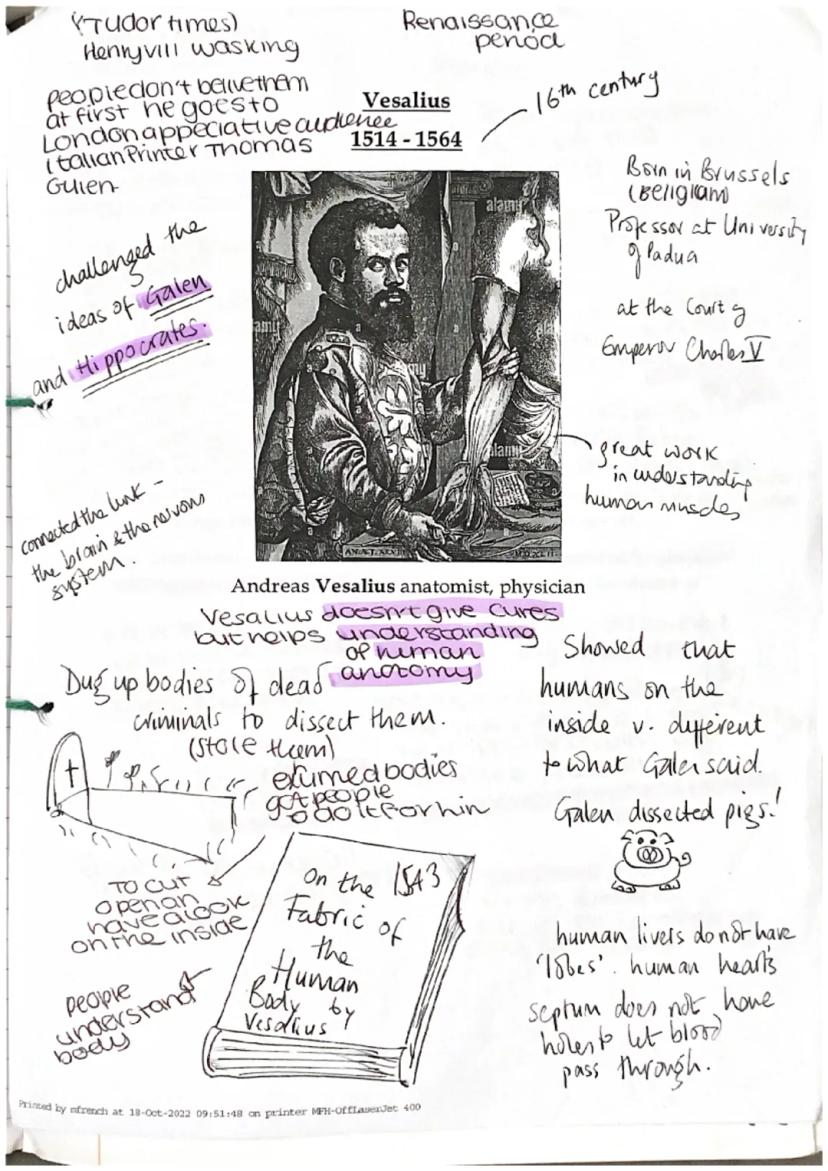 (Tudor times)
Henry VIII wasking
Renaissance
period
People don't belive them
at first he goes to
London appeciative audience
Italian Printer Thomas
Gulen
Vesalius
1514 - 1564
16th century
Born in Brussels
(Beligium)
Professor at University
of Padua
at the Court of
Emperor Charles V
challenged the
ideas of Galen
and Hippocrates.
alamy
alamy
alamy
great work
in understanding
human muscles
connected the link -
the brain & the nervous
system.
Andreas Vesalius anatomist, physician
Vesalius doesn't give cures
but helps understanding
of human
anotomy
Dug up bodies of dead
criminals to dissect them.
(stole them)
exumed bodies
got people
to do it for him
Showed that
humans on the
inside v. different
to what Galen said.
Galen dissected pigs!
To cut
open an
have a look
on the inside
people
understand
body
On the 1543
Fabric of
the
Human
Body by
Vesalius
human livers do not have
'lobes'. human hearts
septum does not have
holes to let blood
pass through.
Printed by mfrench at 18-Oct-2022 09:51:48 on printer MFH-OffLaserJet 400